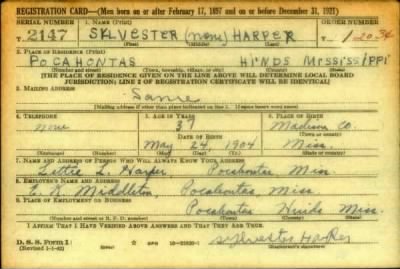 REGISTRATION CARD—(Men born on or after February 17, 1897 and on or before December 31, 1921)
SERIAL NUMBER 1. NAME (Print) ORDER NUMBER
T 2147 SYLVESTER (non) HARPER T 12034
(First) (Middle) (Last)
2. PLACE OF RESIDENCE (Print)
POCAHONTAS HINDS MISSISSIPPI
(Number and street) (Town, township, village, or city) (County) (State)
[THE PLACE OF RESIDENCE GIVEN ON THE LINE ABOVE WILL DETERMINE LOCAL BOARD
JURISDICTION; LINE 2 OF REGISTRATION CERTIFICATE WILL BE IDENTICAL]
3. MAILING ADDRESS
Same
(Mailing address if other than place indicated on line 2. If same insert word same)
4. TELEPHONE 5. AGE IN YEARS 6. PLACE OF BIRTH
none 37 Madison Co.
DATE OF BIRTH (Town or county)
May 24, 1904 Miss.
(Exchange) (Number) (Mo.) (Day) (Yr.) (State or country)
7. NAME AND ADDRESS OF PERSON WHO WILL ALWAYS KNOW YOUR ADDRESS
L. Harper, Pocahontas Miss
8. EMPLOYER'S NAME AND ADDRESS
Middleton, Pocahontas, Miss.
9. PLACE OF EMPLOYMENT OR BUSINESS
Pocahontas Hinds Miss.
(Number and street or R. F. D. number) (Town) (County) (State)
I AFFIRM THAT I HAVE VERIFIED ABOVE ANSWERS AND THAT THEY ARE TRUE.
D. S. S. Form 1
(Revised 1-1-42) (over) GPO 16-21630-1 Sylvester Harper
(Registrant's signature)